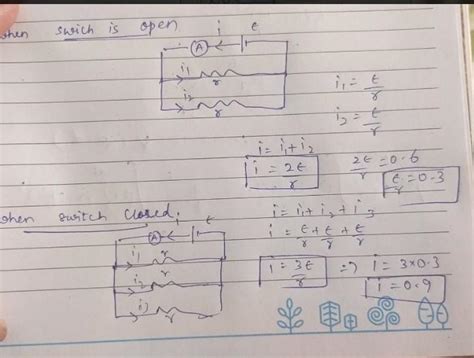 when swich is open
i ε
A
i₁
r
i₂
r
i₁ = ε/r
i₂ = ε/r
i = i₁ + i₂
i = 2ε/r
2ε/r = 0.6
ε/r = 0.3
when switch closed.
i ε
A
i₁ r
r
i₂
i₃ r
i = i₁ + i₂ + i₃
i = ε/r + ε/r + ε/r
i = 3ε/r ⇒ i = 3×0.3
i = 0.9